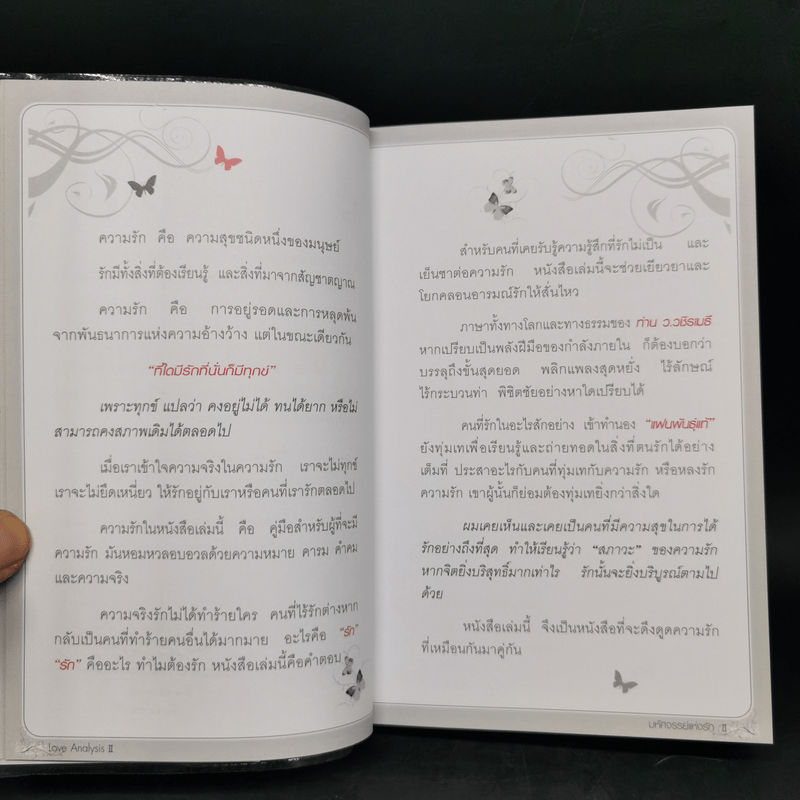 ความรัก คือ ความสุขชนิดหนึ่งของมนุษย์
รักมีทั้งสิ่งที่ต้องเรียนรู้ และสิ่งที่มาจากสัญชาตญาณ
ความรัก คือ การอยู่รอดและการหลุดพ้น
จากพันธนาการแห่งความอ้างว้าง แต่ในขณะเดียวกัน
“ที่ใดมีรักที่นั่นก็มีทุกข์”
เพราะทุกข์ แปลว่า คงอยู่ไม่ได้ ทนได้ยาก หรือไม่
สามารถคงสภาพเดิมได้ตลอดไป
เมื่อเราเข้าใจความจริงในความรัก เราจะไม่ทุกข์
เราจะไม่ยึดเหนี่ยว ให้รักอยู่กับเราหรือคนที่เรารักตลอดไป
ความรักในหนังสือเล่มนี้ คือ คู่มือสำหรับผู้ที่จะมี
ความรัก มันหอมหวลอบอวลด้วยความหมาย คารม คำคม
และความจริง
ความจริงรักไม่ได้ทำร้ายใคร คนที่ไร้รักต่างหาก
กลับเป็นคนที่ทำร้ายคนอื่นได้มากมาย อะไรคือ “รัก”
“รัก” คืออะไร ทำไมต้องรัก หนังสือเล่มนี้คือคำตอบ
Love Analysis II
สำหรับคนที่เคยรับรู้ความรู้สึกที่รักไม่เป็น และ
เย็นชาต่อความรัก หนังสือเล่มนี้จะช่วยเยียวยาและ
โยกคลอนอารมณ์รักให้สั่นไหว
ภาษาทั้งทางโลกและทางธรรมของ ท่าน ว.วชิรเมธี
หากเปรียบเป็นพลังฝีมือของกำลังภายใน ก็ต้องบอกว่า
บรรลุถึงขั้นสุดยอด พลิกแพลงสุดหยั่ง ไร้ลักษณ์
ไร้กระบวนท่า พิชิตชัยอย่างหาใดเปรียบได้
คนที่รักในอะไรสักอย่าง เข้าทำนอง “แฟนพันธุ์แท้”
ยังทุ่มเทเพื่อเรียนรู้และถ่ายทอดในสิ่งที่ตนรักได้อย่าง
เต็มที่ ประสาอะไรกับคนที่ทุ่มเทกับความรัก หรือหลงรัก
ความรัก เขาผู้นั้นก็ย่อมต้องทุ่มเทยิ่งกว่าสิ่งใด
ผมเคยเห็นและเคยเป็นคนที่มีความสุขในการได้
รักอย่างถึงที่สุด ทำให้เรียนรู้ว่า “สภาวะ” ของความรัก
หากจิตยิ่งบริสุทธิ์มากเท่าไร รักนั้นจะยิ่งบริบูรณ์ตามไป
ด้วย
หนังสือเล่มนี้ จึงเป็นหนังสือที่จะดึงดูดความรัก
ที่เหมือนกันมาคู่กัน
มหัศจรรย์แห่งรัก II